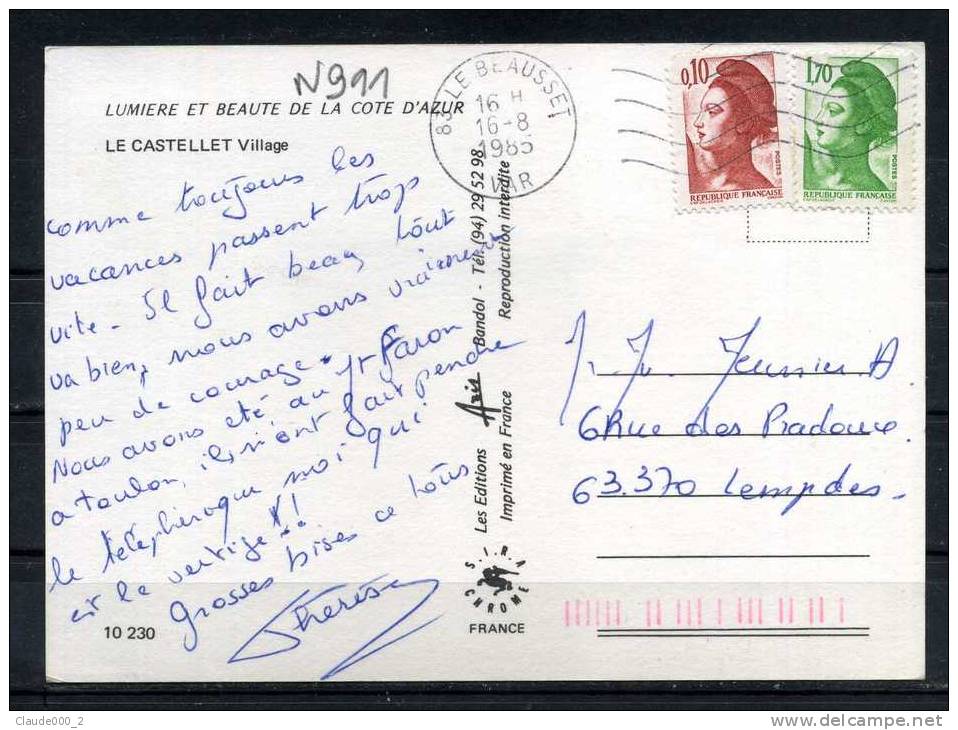 N911
LUMIERE ET BEAUTE DE LA COTE D'AZUR
LE CASTELLET Village
comme toujours les
vacances passent trop
vite - Il fait beau, tout
va bien, nous avons vraiment
peu de courage.
Nous avons été au Mt Faron
a toulon, ils m'ont fait prendre
le téléphérique moi qui
ai le vertige !!
Grosses bises a tous
Thérèse
10 230
83 LE BEAUSSET
16 H
16-8
1985
VAR
0,10
POSTES
REPUBLIQUE FRANÇAISE
1,70
POSTES
REPUBLIQUE FRANÇAISE
Les Editions Aris Bandol - Tél. (94) 29 52 98
Imprimé en France Reproduction interdite
S.I.R.A
CHROME
FRANCE
6 Rue des
63.370 Lempdes -
Claude000_2
www.delcampe.net